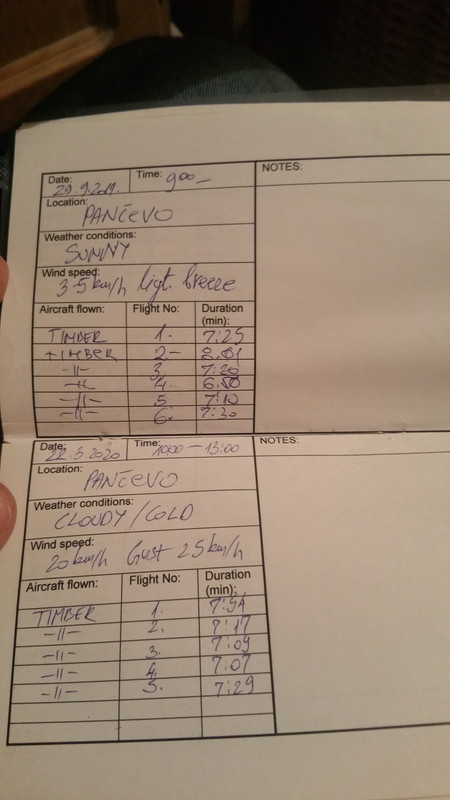 Date: 29.9.2019. Time: 900- NOTES:
Location: PANČEVO
Weather conditions:
SUNNY
Wind speed:
3-5 km/h ligt breeze
Aircraft flown: Flight No: Duration (min):
TIMBER 1. 7:25
TIMBER 2- 2.01
-11- 3. 7:20
-11- 4. 6.50
-11- 5. 7:10
-11- 6. 7:30
Date: 22.5.2020 Time: 1000-13:00 NOTES:
Location: PANČEVO
Weather conditions:
CLOUDY / COLD
Wind speed:
20 km/h Gust 25 km/h
Aircraft flown: Flight No: Duration (min):
TIMBER 1. 7:54
-11- 2. 7:17
-11- 3. 7:09
-11- 4. 7:07
-11- 5. 7:29